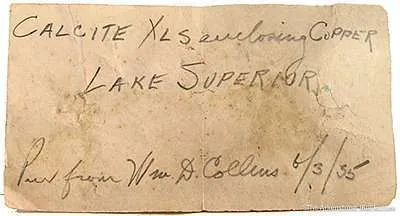 CALCITE XLS enclosing COPPER
LAKE SUPERIOR
Pur from Wm. D. Collins 6/3/35